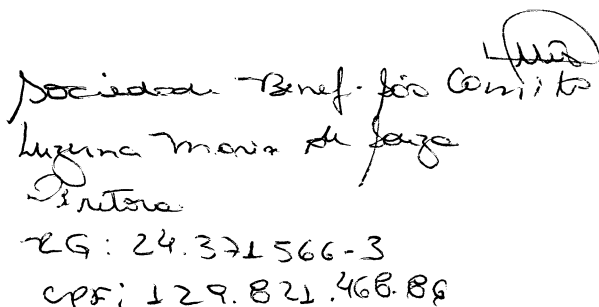 Sociedade Benef. São Camilo
Luzerna Maria de Souza
Diretora
RG: 24.371566-3
CPF: 129.821.468.86